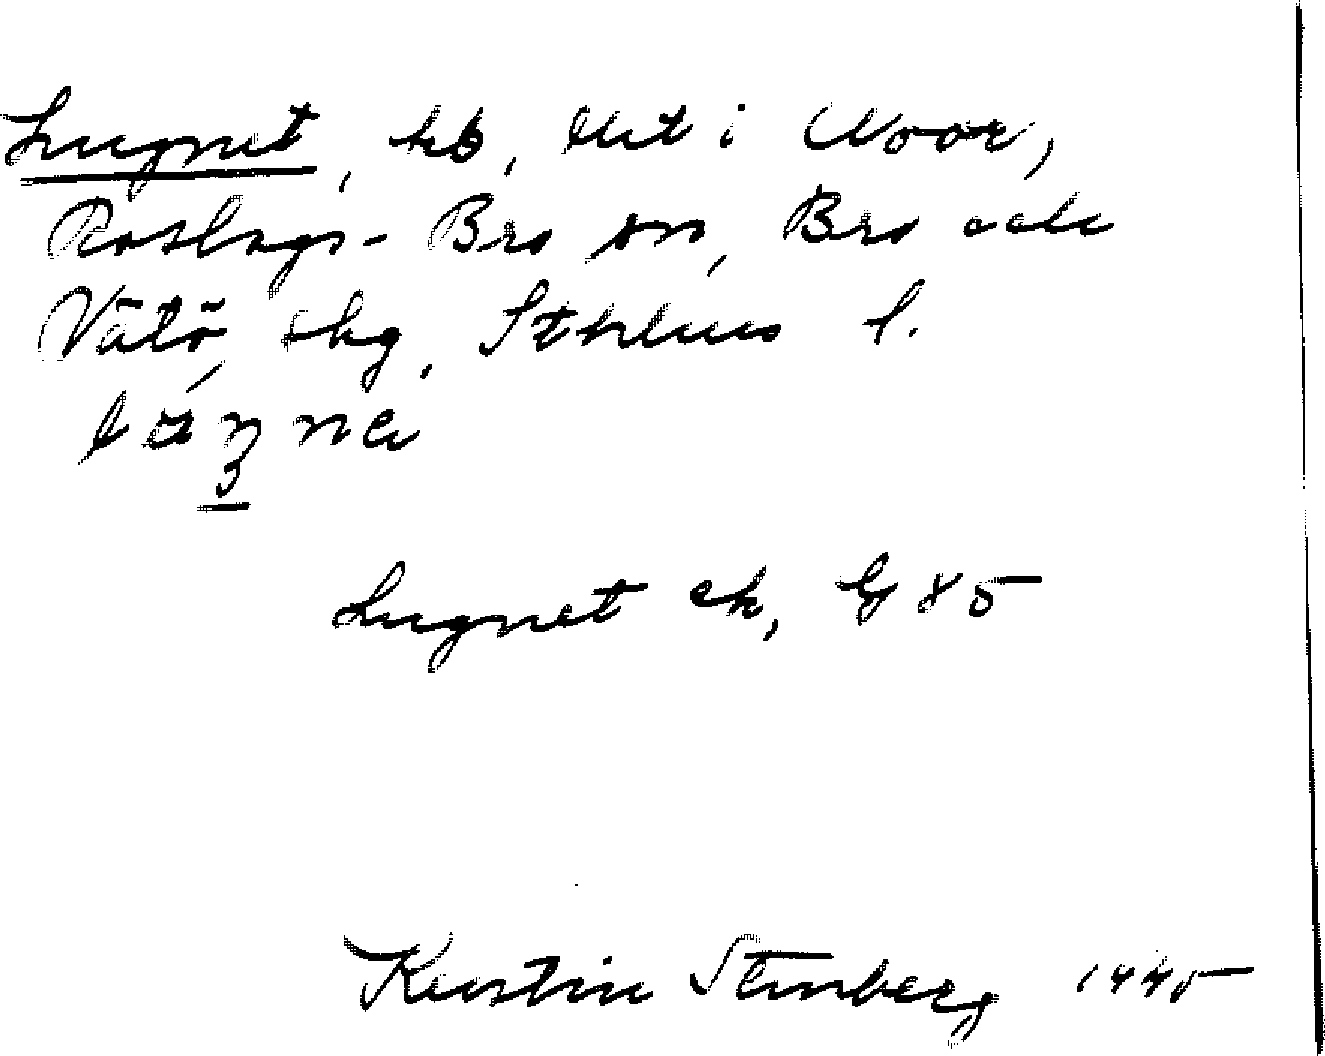 Lugnet, hb, utit i Noor,
Roslags-Bro sn, Bro och
Vätö, skg, Sthlms l.
Lugnet ek, G 85
Kerstin Stenberg 1945